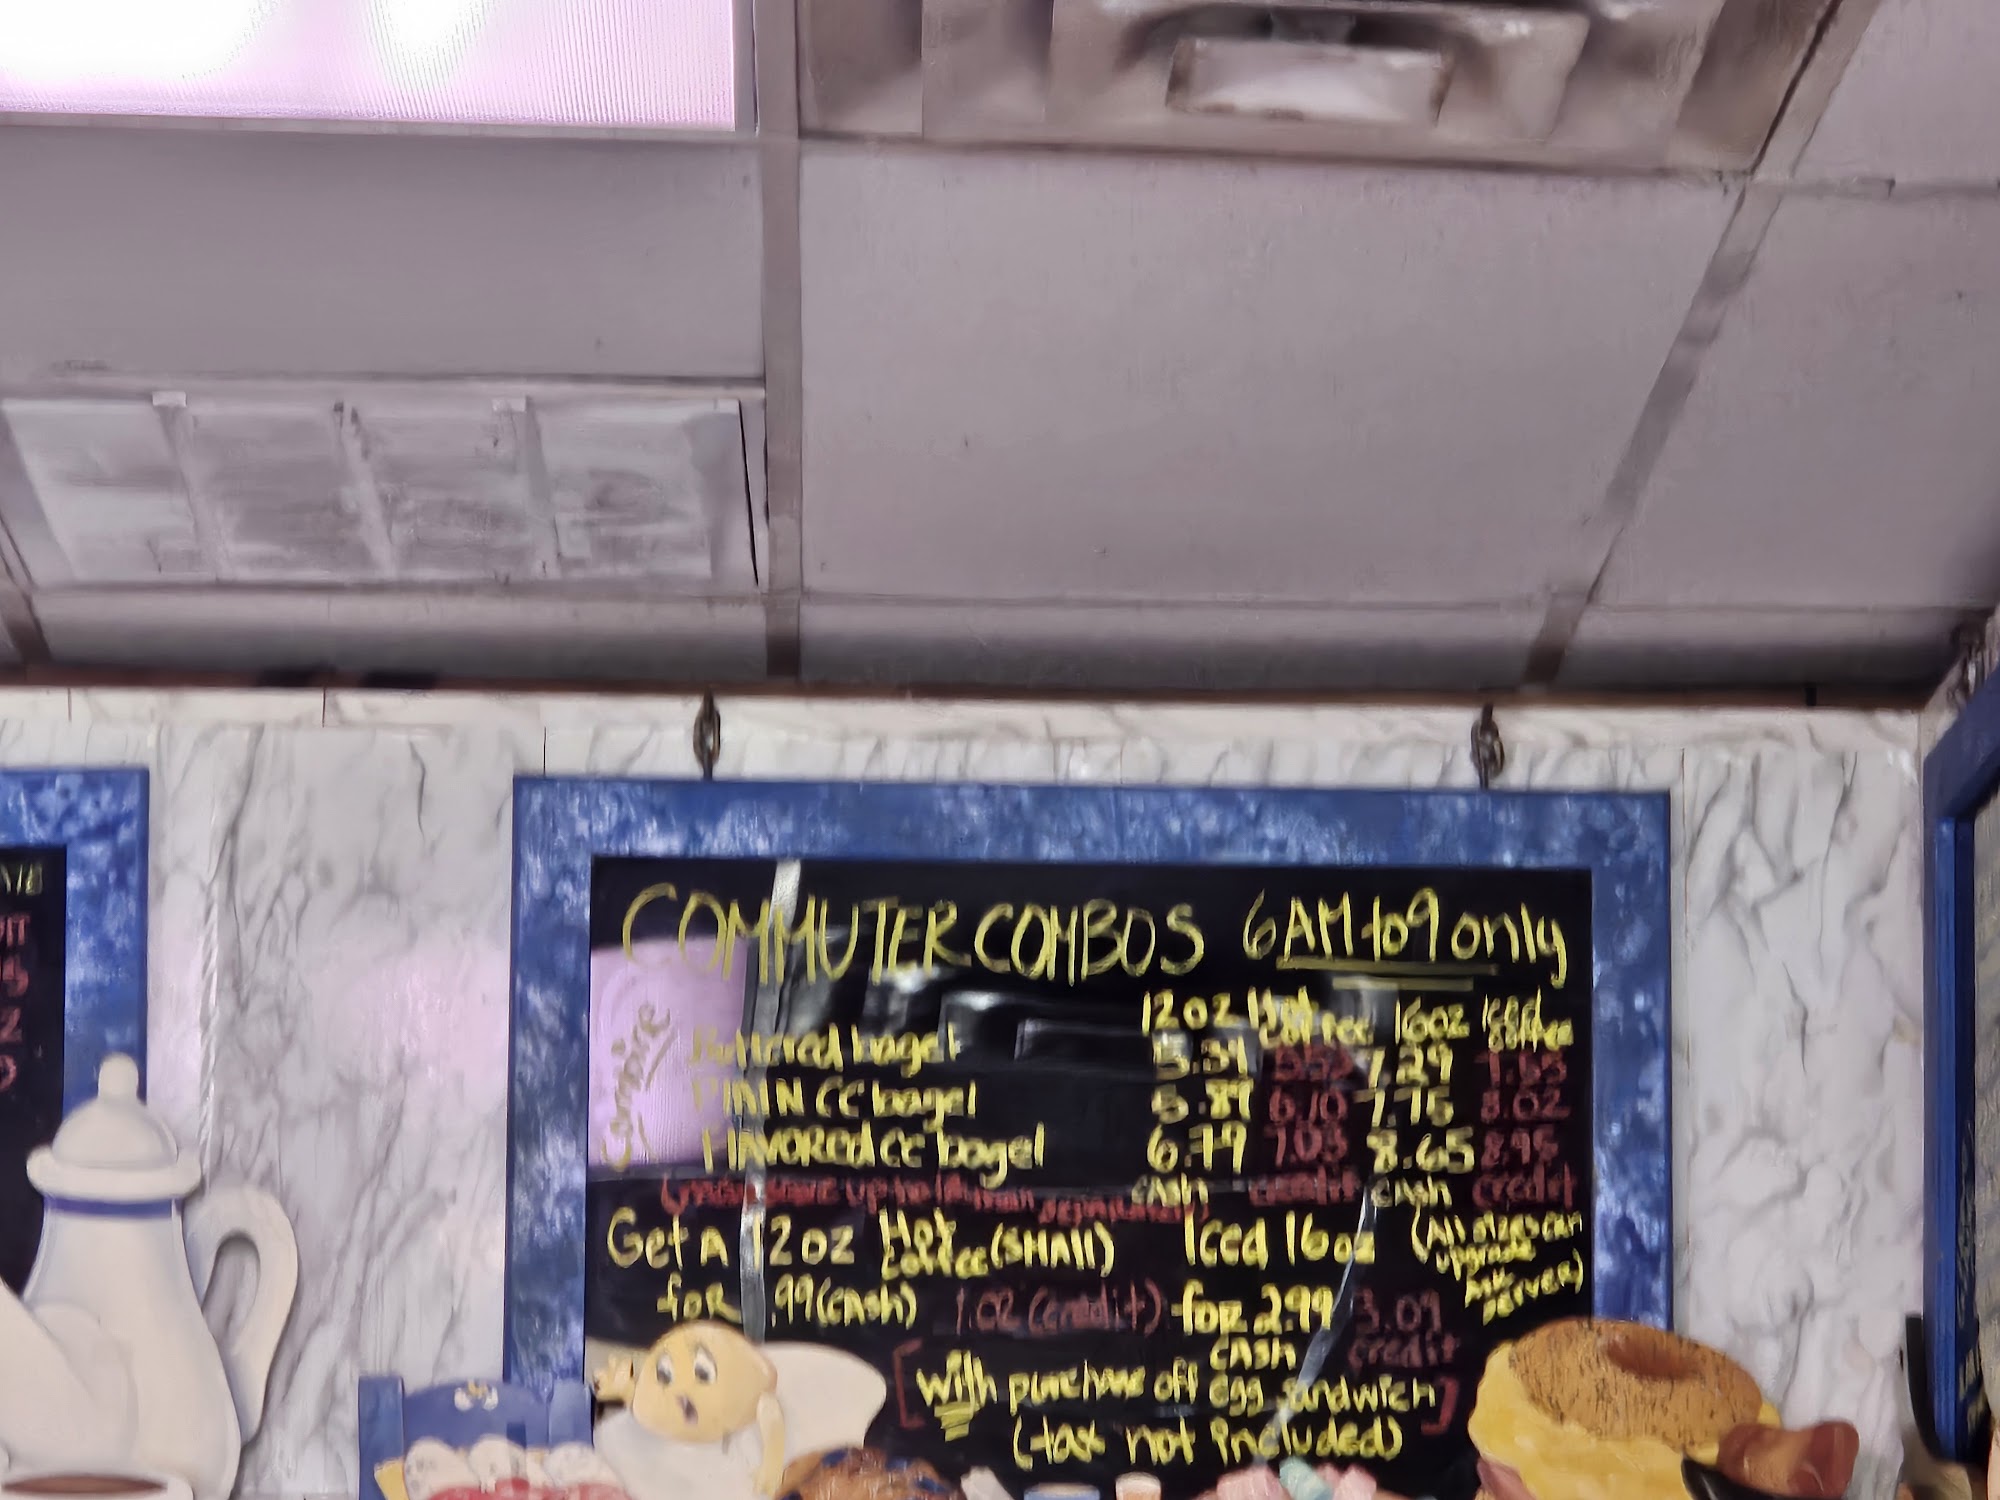 COMMUTER COMBOS 6AM to 9 only
12oz Hot Coffee 16oz Iced Coffee
Combire
Buttered bagel 7.29
PlAIN CC bagel 5.89 6.10 7.75 8.02
FlAVORed CC bagel 6.79 7.03 8.65 8.95
CAsh credit CAsh credit
Get A 12oz Hot Coffee (SMAll) Iced 16oz (All sizes can upgrade Ask server)
foR .99 (CAsh) 1.02 (credit) foR 2.99 CAsh 3.09 credit
[With purchase off egg sandwich]
(tax not included)